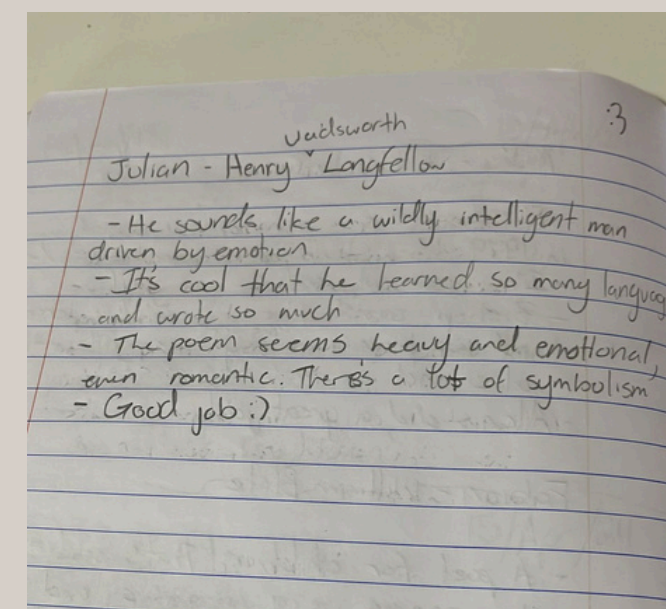 :3
Vadsworth
Julian - Henry ˅ Longfellow
- He sounds like a wildly intelligent man
driven by emotion
- It's cool that he learned so many languag
and wrote so much
- The poem seems heavy and emotional,
even romantic. There's a lot of symbolism
- Good job :)